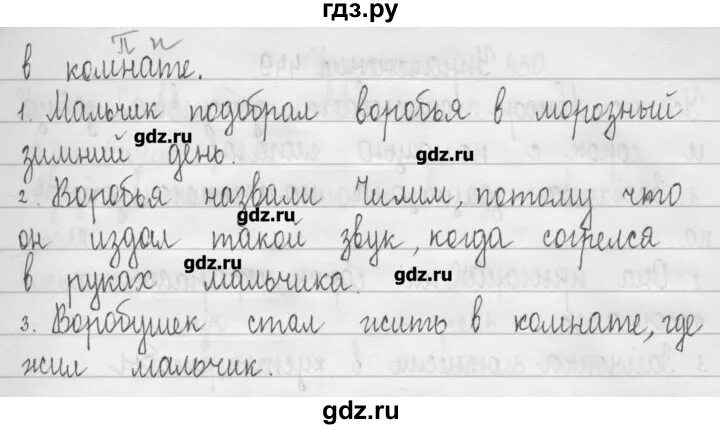 гдз.ру
П п
в комнате.
1. Мальчик подобрал воробья в морозный
зимний день.
gdz.ru
gdz.ru
2. Воробья назвали Чилим, потому что
gdz.ru
он издал такой звук, когда согрелся
gdz.ru
gdz.ru
в руках мальчика.
3. Воробушек стал жить в комнате, где
gdz.ru
жил мальчик.
gdz.ru